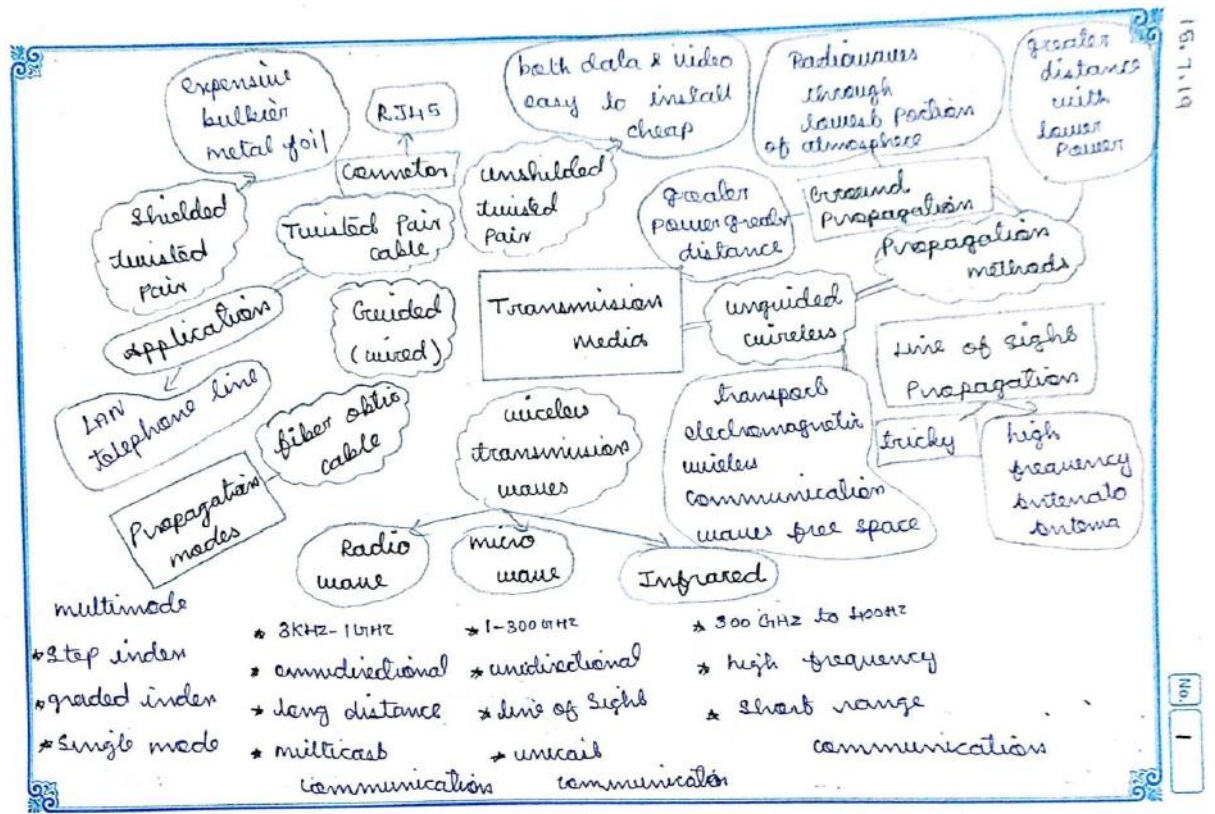 16.7.19
expensive
bulkier
metal foil
RJ45
both data & video
easy to install
cheap
Radiowaves
through
lowest portion
of atmosphere
greater
distance
with
lower
Power
Shielded
twisted
Pair
Connetor
Twisted Pair
cable
unshilded
twisted
Pair
greater
power greater
distance
Ground
Propagation
Propagation
methods
Applications
Guided
(wired)
Transmission
media
unguided
wireless
Line of Sight
Propagation
LAN
telephone line
fiber obtic
cable
wireless
transmission
waves
transport
electromagnetic
wireless
communication
waves free space
tricky
high
frequency
antenato
antenna
Propagation
modes
Radio
wave
micro
wave
Infrared
multimode
* Step index
* graded index
* Single mode
* 3KHZ-1GHZ
* omnidirectional
* long distance
* milticast
communications
* 1-300GHZ
* unidirectional
* line of Sight
* unicast
communication
* 300 GHZ to
* high frequency
* Short range
communications
No.
1